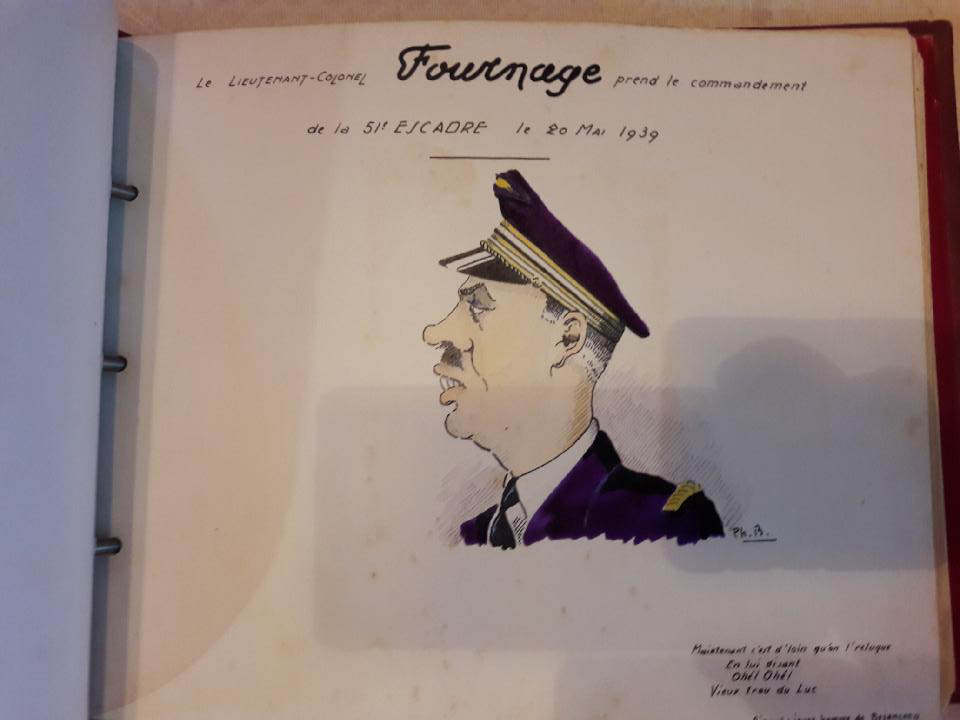 Le LIEUTENANT-COLONEL Fournage prend le commandement
de la 51e ESCADRE le 20 MAI 1939
Ph. B.
Maintenant c'est d'loin qu'on l'reluque
En lui disant
Ohé! Ohé!
Vieux trou du Luc